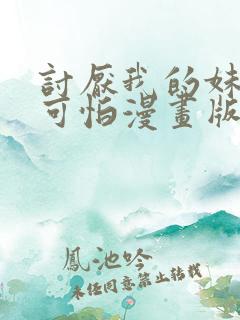 討厭我的妹
可怕漫畫版
鳳池吟
未經同意禁止轉載